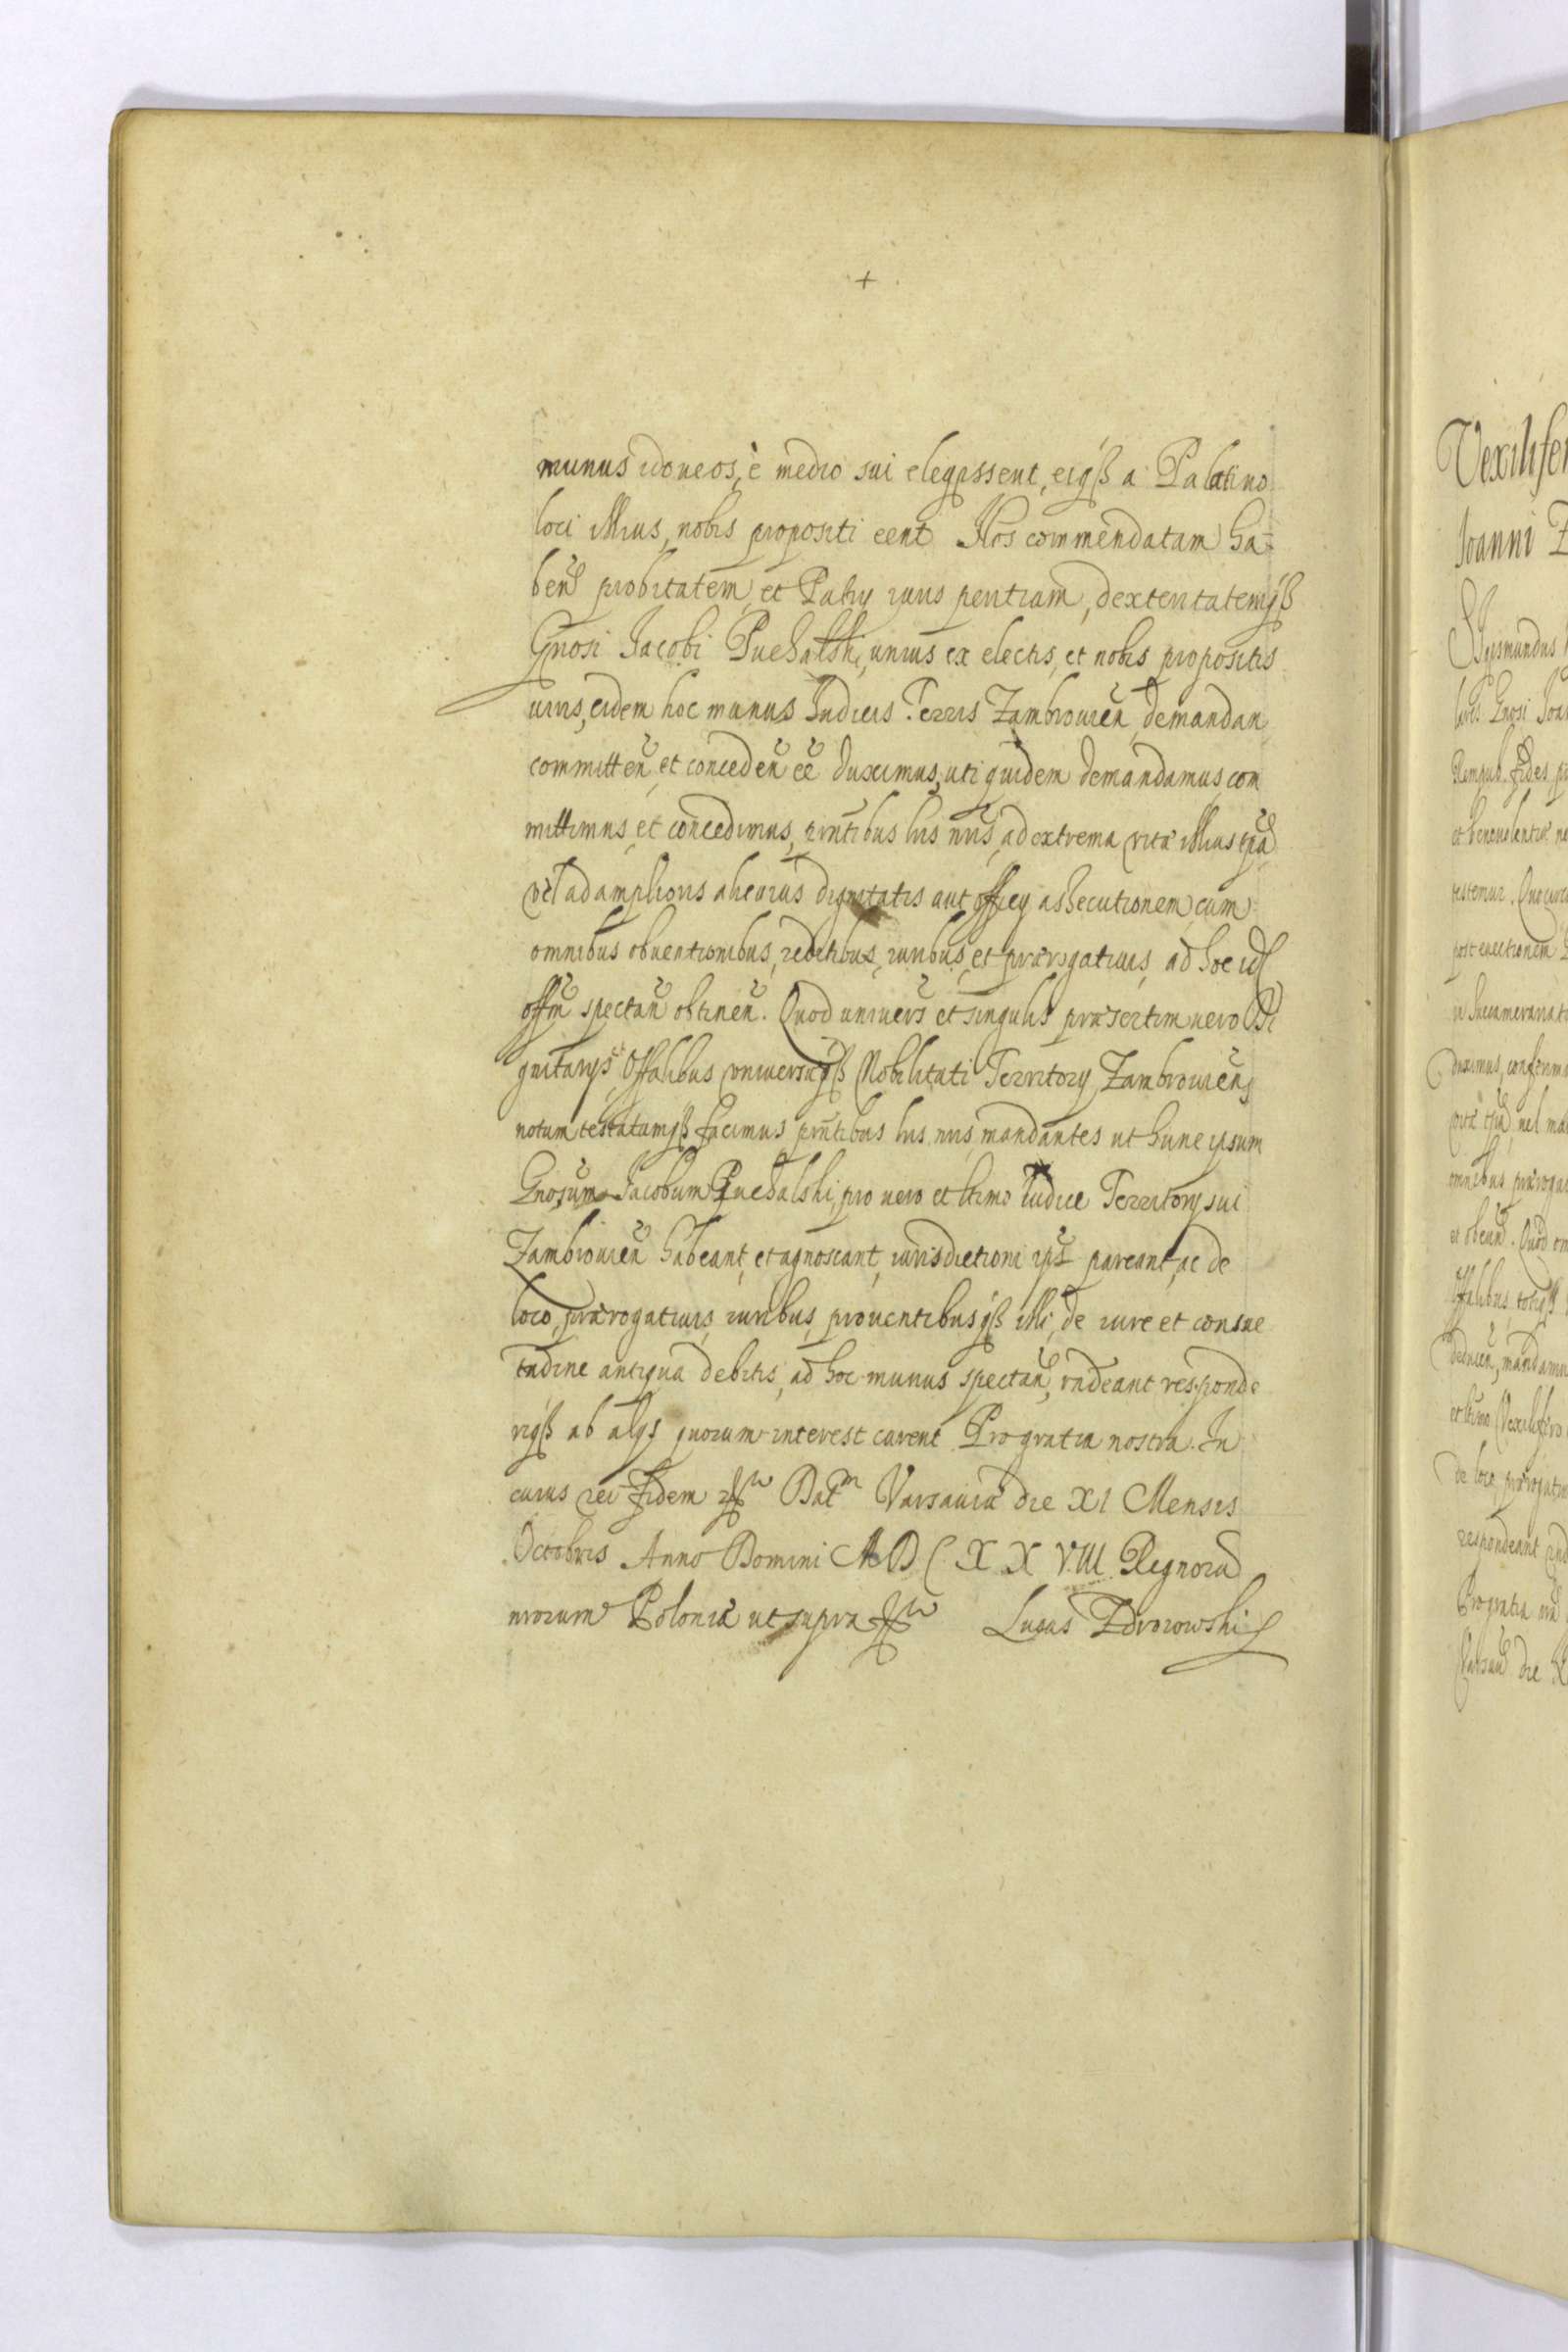 +
munus idoneos, è medio sui elegissent, eiqß a Palatino
loci illius, nobis propositi eent. Nos commendatam ha-
ben probitatem, et Patry iuris peritiam, dexteritatemqß
Gnosi Jacobi Puchalski, unius ex electis, et nobis propositis
uiris, eidem hoc munus Iudicis Terris Zambrouien demandan
committen et conceden ee duximus, uti quidem demandamus com
mittimus, et concedimus, pntibus his nris, ad extrema vitæ illius tpa
vel ad amplioris alicuius dignitatis aut officy assecutionem, cum
omnibus obuentionibus, reditibus, iuribus, et prærogatiuis, ad hoc id
offm spectan obtinen. Quod uniuers et singulis præsertim uero Di
gnitarys Offalibus uniuersæqß Nobilitati Territory Zambrouien
notum testatumqß facimus pntibus his nris mandantes ut hunc ipsum
Gnosum Jacobum Puchalski, pro uero et ltimo Iudice Territory sui
Zambrouien habeant, et agnoscant, iurisdictioni ips pareant, ac de
loco, prærogatiuis, iuribus, prouentibusqß illi, de iure et consue
tudine antiqua debitis, ad hoc munus spectan, rndeant responde
riqß ab alys quorum interest curent Pro gratia nostra. In
cuius rei fidem Datm Varsauiæ die XI Mensis
Octobris Anno Domini MDCXXVIII Regnoru
nrorum Poloniæ ut supra Lucas Zdroiowski
Vexilife
Joanni Z
Sigismundus
Gnosi Joan
Rempub. fides
et beneuolentiæ
testemur.
post euectionem
duximus, conferim
vitæ vel
omnibus præroga
Quod om
Offalibus, totiqß
mandamu
et ltimo Vexilifero
de loco, prærogatiu
respondeant
Pro gratia nra
die X